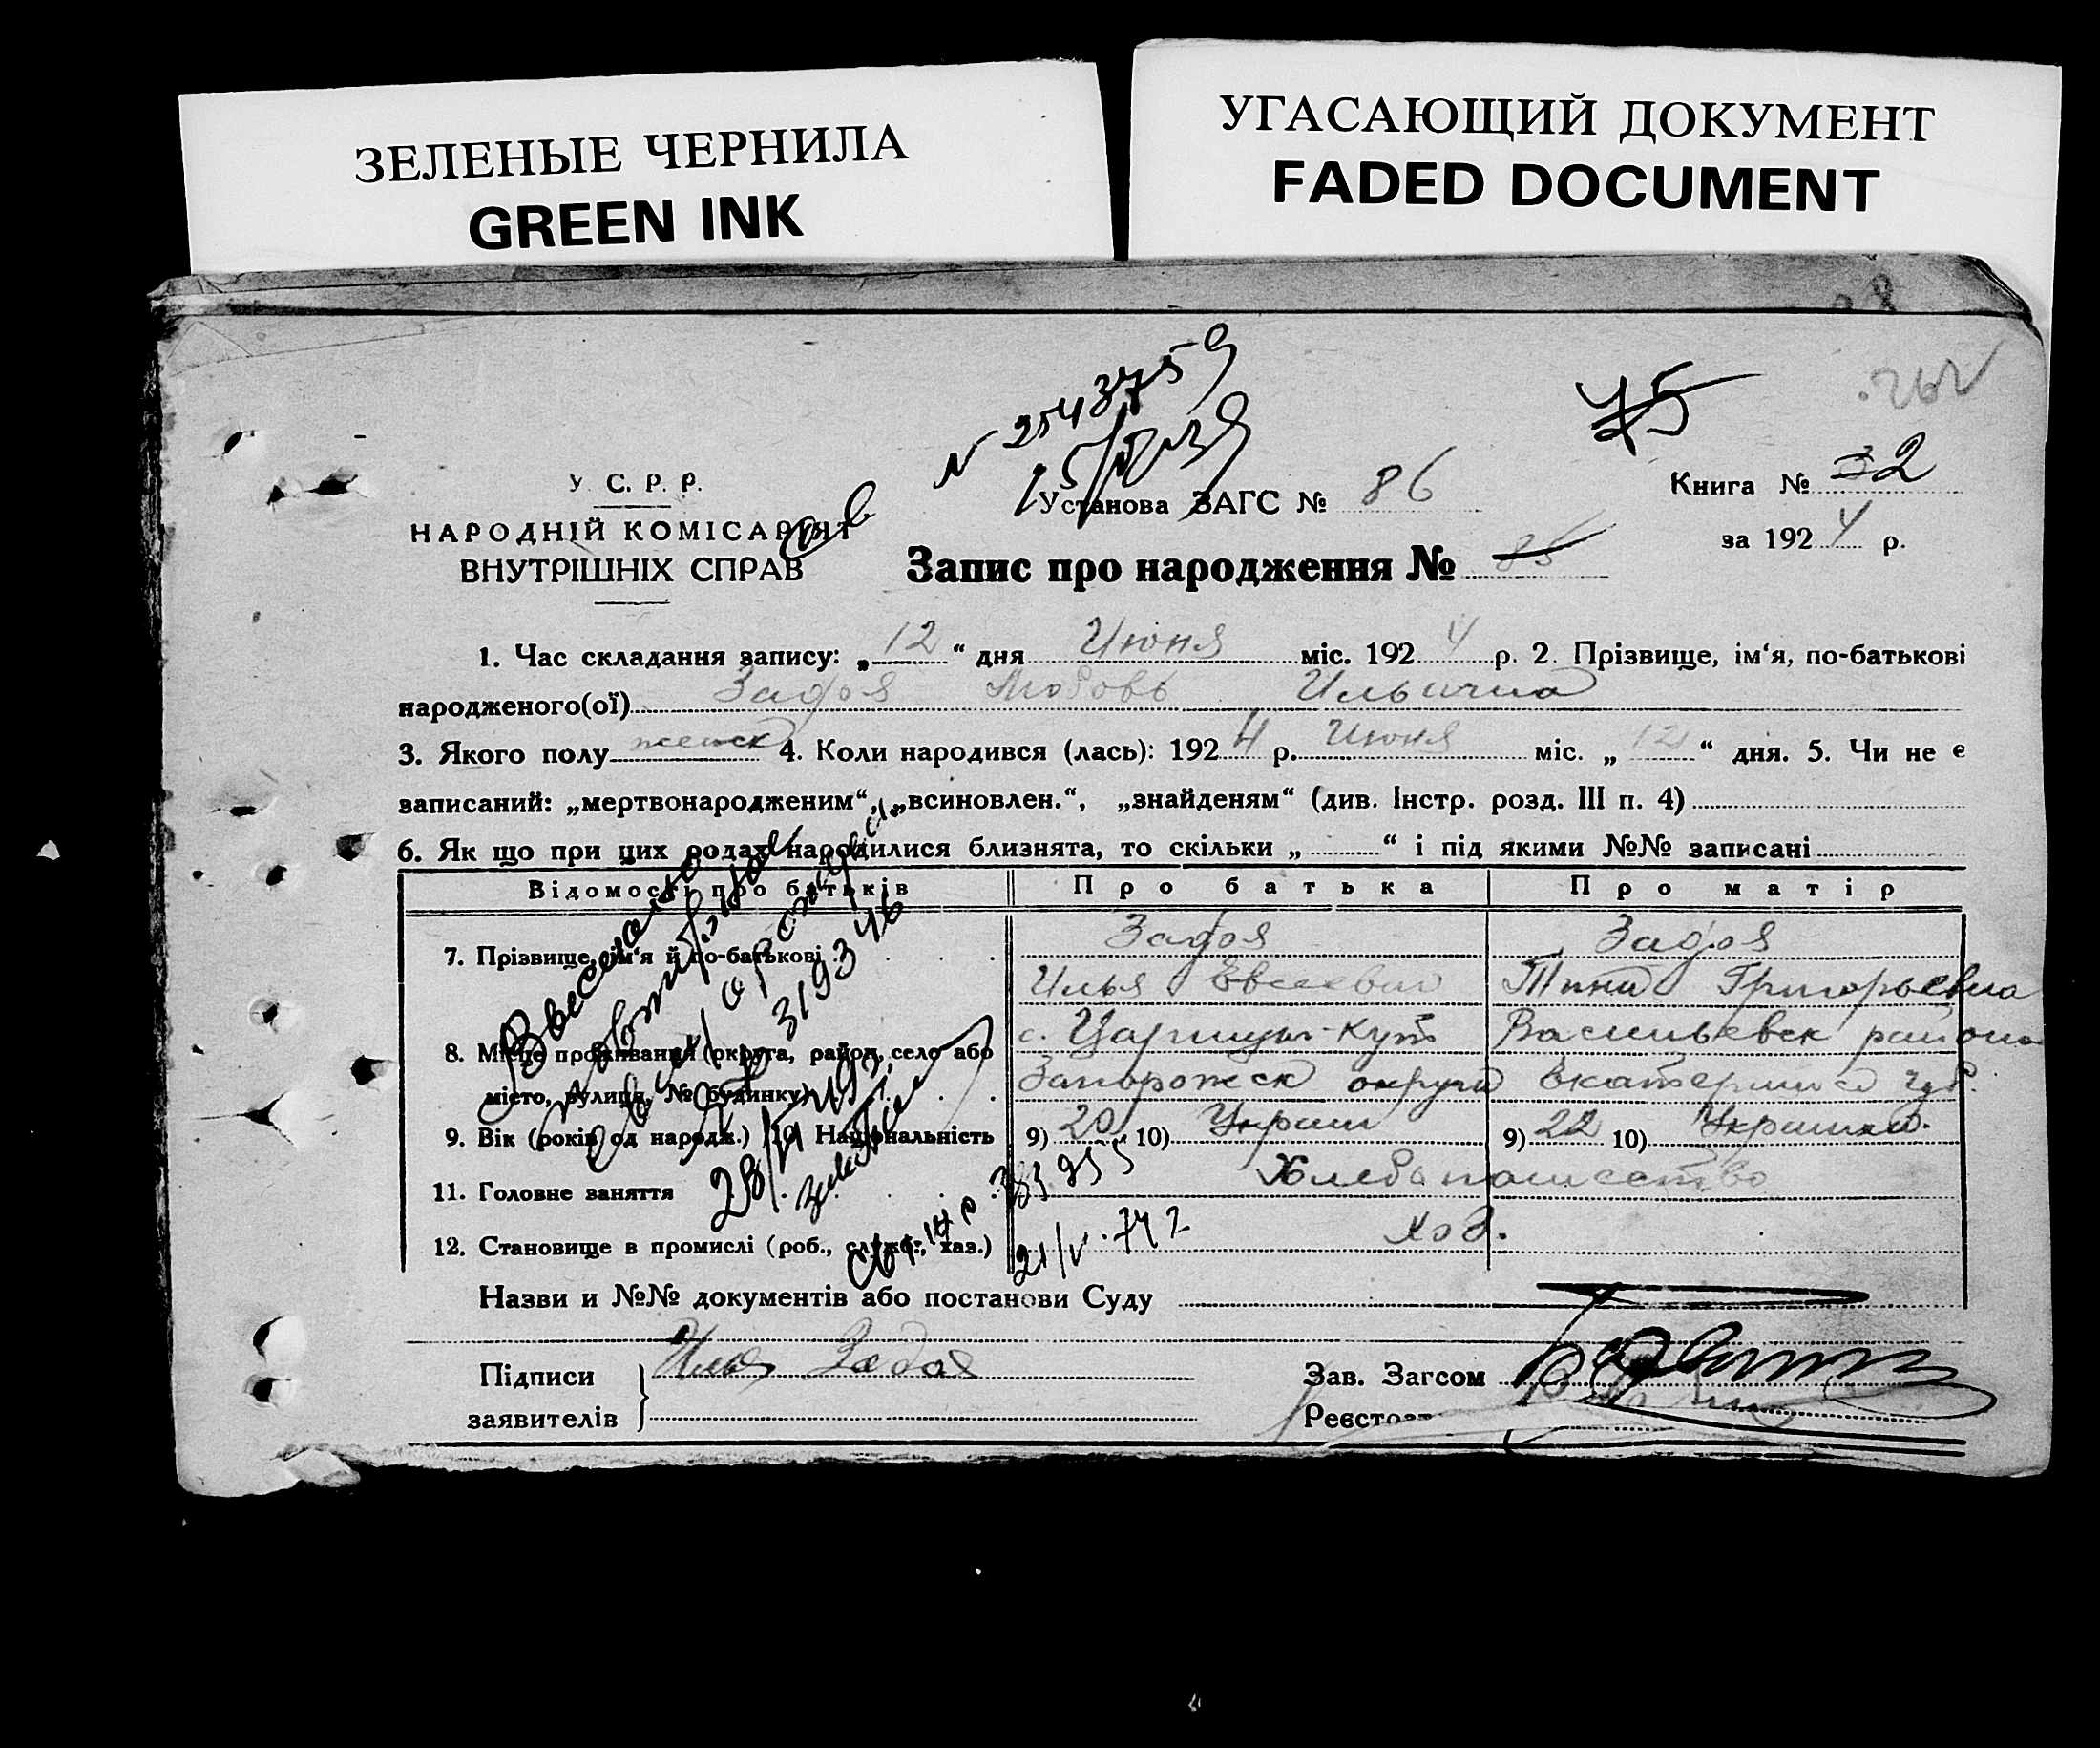 ЗЕЛЕНЫЕ ЧЕРНИЛА
GREEN INK
УГАСАЮЩИЙ ДОКУМЕНТ
FADED DOCUMENT
№ 2543759
75
У. С. Р. Р.
НАРОДНІЙ КОМІСАРІЯТ
ВНУТРІШНІХ СПРАВ
Установа ЗАГС № 86
Книга № 32
за 1924 р.
Запис про народження № 85
1. Час складання запису: „12“ дня Июня міс. 1924 р. 2. Прізвище, ім‘я, по-батькові
народженого(ої) Задоя Любовь Ильична
3. Якого полу женск 4. Коли народився (лась): 1924 р. Июня міс. „12“ дня. 5. Чи не є
записаний: „мертвонародженим“, „всиновлен.“, „знайденям“ (див. Інстр. розд. III п. 4)
6. Як що при цих родах народилися близнята, то скільки „ “ і під якими №№ записані
Відомості про батьків Про батька Про матір
7. Прізвище, ім‘я й по-батькові Задоя Задоя
Илья Евсеевич Григорьевна
8. Місце проживання (округа, район, село або с. Царицын-Кут Васильевск района
місто, вулиця, № будинку) Запорожск округи Екатеринос губ.
9. Вік (років од народж.) 10. Національність 9) 20 10) Украин 9) 22 10) Украинка.
11. Головне заняття Хлебопашество
12. Становище в промислі (роб., служб., хаз.) хоз.
319346
21/V.742
Назви и №№ документів або постанови Суду
Підписи Илья Задоя
заявителів
Зав. Загсом
Реєстр